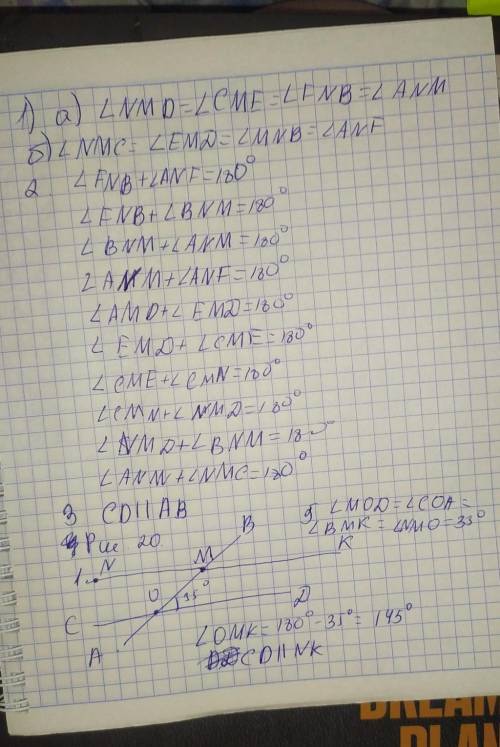 1) а) ∠NMD=∠CME=∠FNB=∠ANM
б) ∠NMC=∠EMD=∠MNB=∠ANF
2 ∠FNB+∠ANF=180°
∠FNB+∠BNM=180°
∠BNM+∠ANM=180°
∠ANM+∠ANF=180°
∠AMD+∠EMD=180°
∠EMD+∠CME=180°
∠CME+∠CMN=180°
∠CMN+∠NMD=180°
∠NMD+∠BNM=180°
∠ANM+∠NMC=180°
3 CD||AB
4 Рис 20
5 ∠MOD=∠COA=
∠BMK=∠NMO=35°
B
1. N M K
O 35° D
C
A
∠OMK=180°-35°=145°
CD||NK
DREAM
PLAN